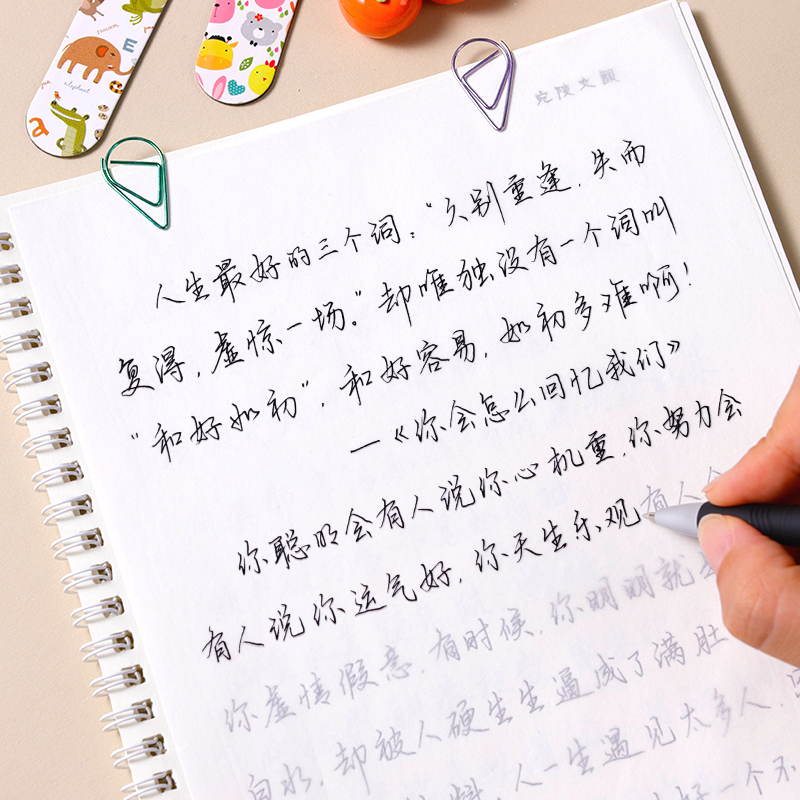 宛陵文韻
人生最好的三个词："久别重逢，失而
复得，虚惊一场。"却唯独没有一个词叫
"和好如初"，和好容易，如初多难啊！
—《你会怎么回忆我们》
你聪明会有人说你心机重，你努力会
有人说你运气好，你天生乐观有人会
你虚情假意，有时候，你明明就是
你却被人硬生生逼成了满肚
白水，却被人硬生生逼成了满肚
人一生遇见太多人，
好一个不
elephant